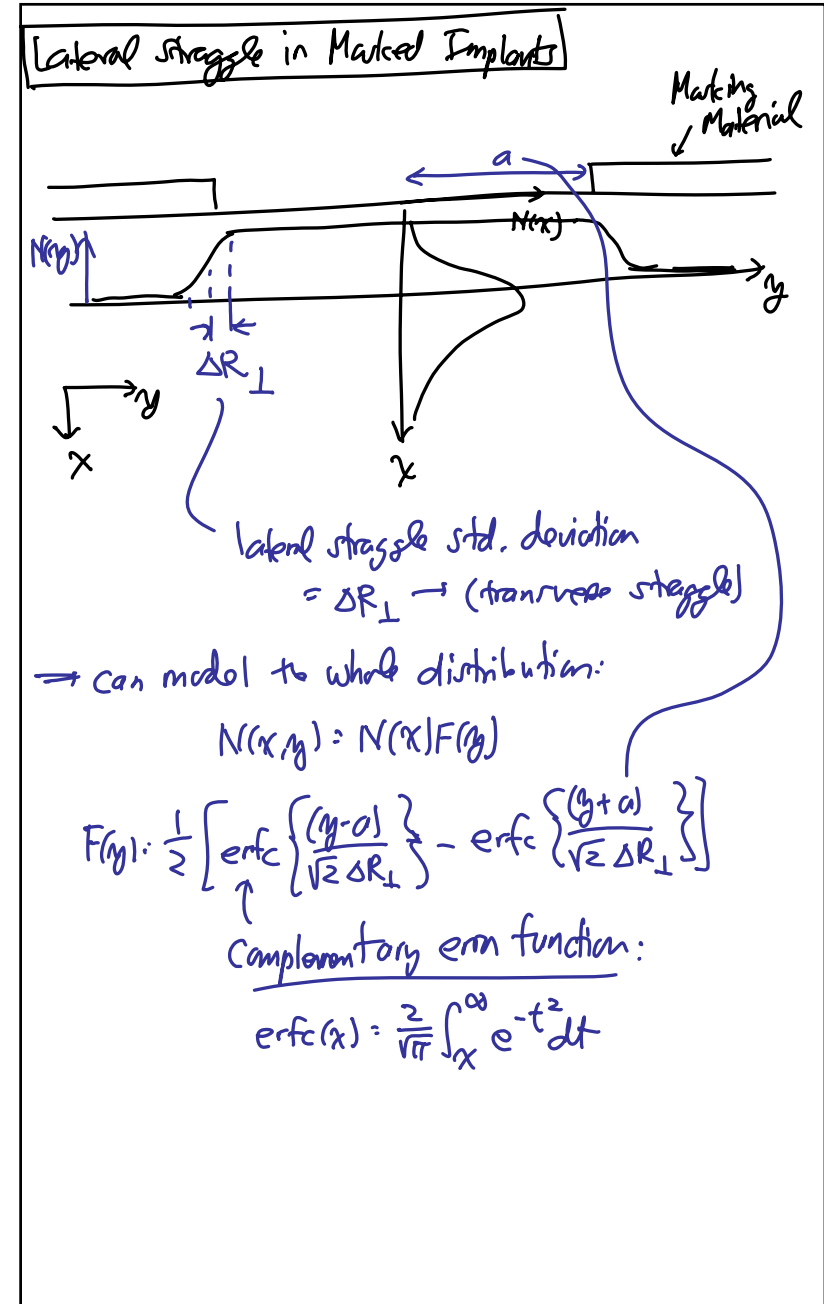 Lateral straggle in Masked Implants
Masking
Material
a
N(x)
N(y)
y
ΔR⊥
y
x
x
lateral straggle std. deviation
= ΔR⊥ → (transverse straggle)
⇒ can model the whole distribution:
N(x,y) = N(x)F(y)
F(y) = 1/2 [erfc{(y-a)/(√2 ΔR⊥)} - erfc{(y+a)/(√2 ΔR⊥)}]
Complementary error function:
erfc(x) = 2/√π ∫_x^∞ e^{-t²}dt